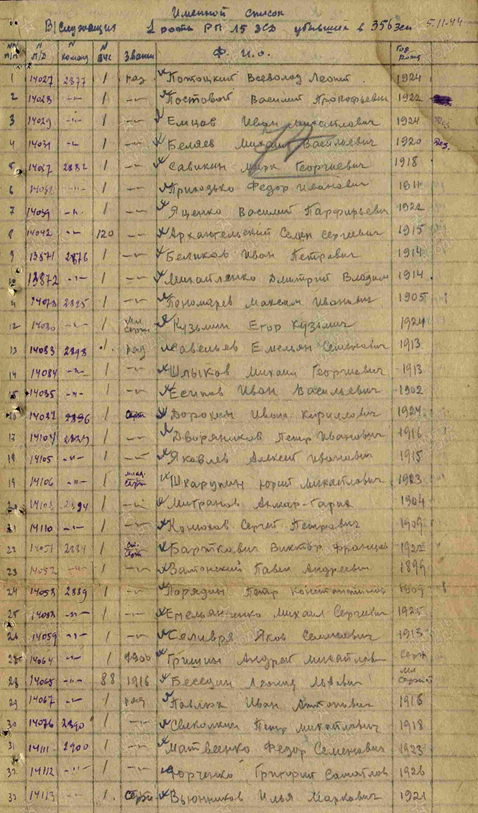 Именной список
В/служащих 1 роты РП 15 ЗСД убывших в 356 зсп 5.11.44
№ П/П № П/Б № команд № вус Звание Ф. И. О. Год рожд
1 14027 2877 1 ряд Пожоцкий Всеволод Леонт. 1924
2 14028 -"- 1 -"- Постовой Василий Прокофьевич 1922
3 14029 -"- 1 -"- Емцов Иван 1924
4 14031 -"- 1 -"- Беляев Михаил Васильевич 1920
5 14037 2882 1 -"- Савикин Марк Георгиевич 1918
6 -"- 1 -"- Приходько Федор Иванович 1911
7 14039 -"- 1 -"- Яценко Василий Парфирьевич 1922
8 14042 -"- 120 -"- Архангельский Семен Сергеевич 1915
9 13871 2876 1 -"- Беликов Иван Петрович 1914
10 13872 -"- 1 -"- Михайленко Дмитрий Владим 1914
11 14078 2895 1 -"- Пономарев Максим Иванович 1905
12 14080 -"- 1 Кузьмин Егор Кузьмич 1924
13 14083 2893 1 ряд Савельев Емельян Семенович 1913
14 14084 -"- 1 -"- Шлыков Михаил Георгиевич 1913
15 14085 -"- 1 -"- Есипов Иван Васильевич 1902
16 14032 2896 1 Дорохин Иван Кириллович 1924
17 14104 1 -"- Дворянинов Петр Иванович 1916
18 14105 -"- 1 -"- Яковлев Алексей Иванович 1915
19 14106 -"- 1 млад. серж Юрий Михайлович 1923
20 14108 2894 1 -"- 1904
21 14110 -"- 1 -"- Коновов Сергей Петрович 1909
22 14051 2884 1 Барткович Виктор Францев 1922
23 14052 -"- 1 -"- Ватонский Павел Андреевич 1894
24 14053 2889 1 -"- Порядин Петр Константинов 1909
25 14058 -"- 1 -"- Емельяненко Михаил Сергеевич 1925
26 14059 -"- 1 -"- Селивря Яков Семенович 1913
27 14064 -"- 1 1900 Гришин Андрей Михайлов Серж
28 14065 -"- 88 1916 Беседин Леонид Львович мл серж
29 14067 -"- 1 ряд Павлюк Иван Антонович 1918
30 14076 2890 1 -"- Петр Михайлович 1918
31 14111 2900 1 -"- Матвеенко Федор Семенович 1923
32 14112 -"- 1 -"- Юрченко Григорий Самойлов 1926
33 14113 -"- 1 серж Вьюнников Илья Маркович 1921